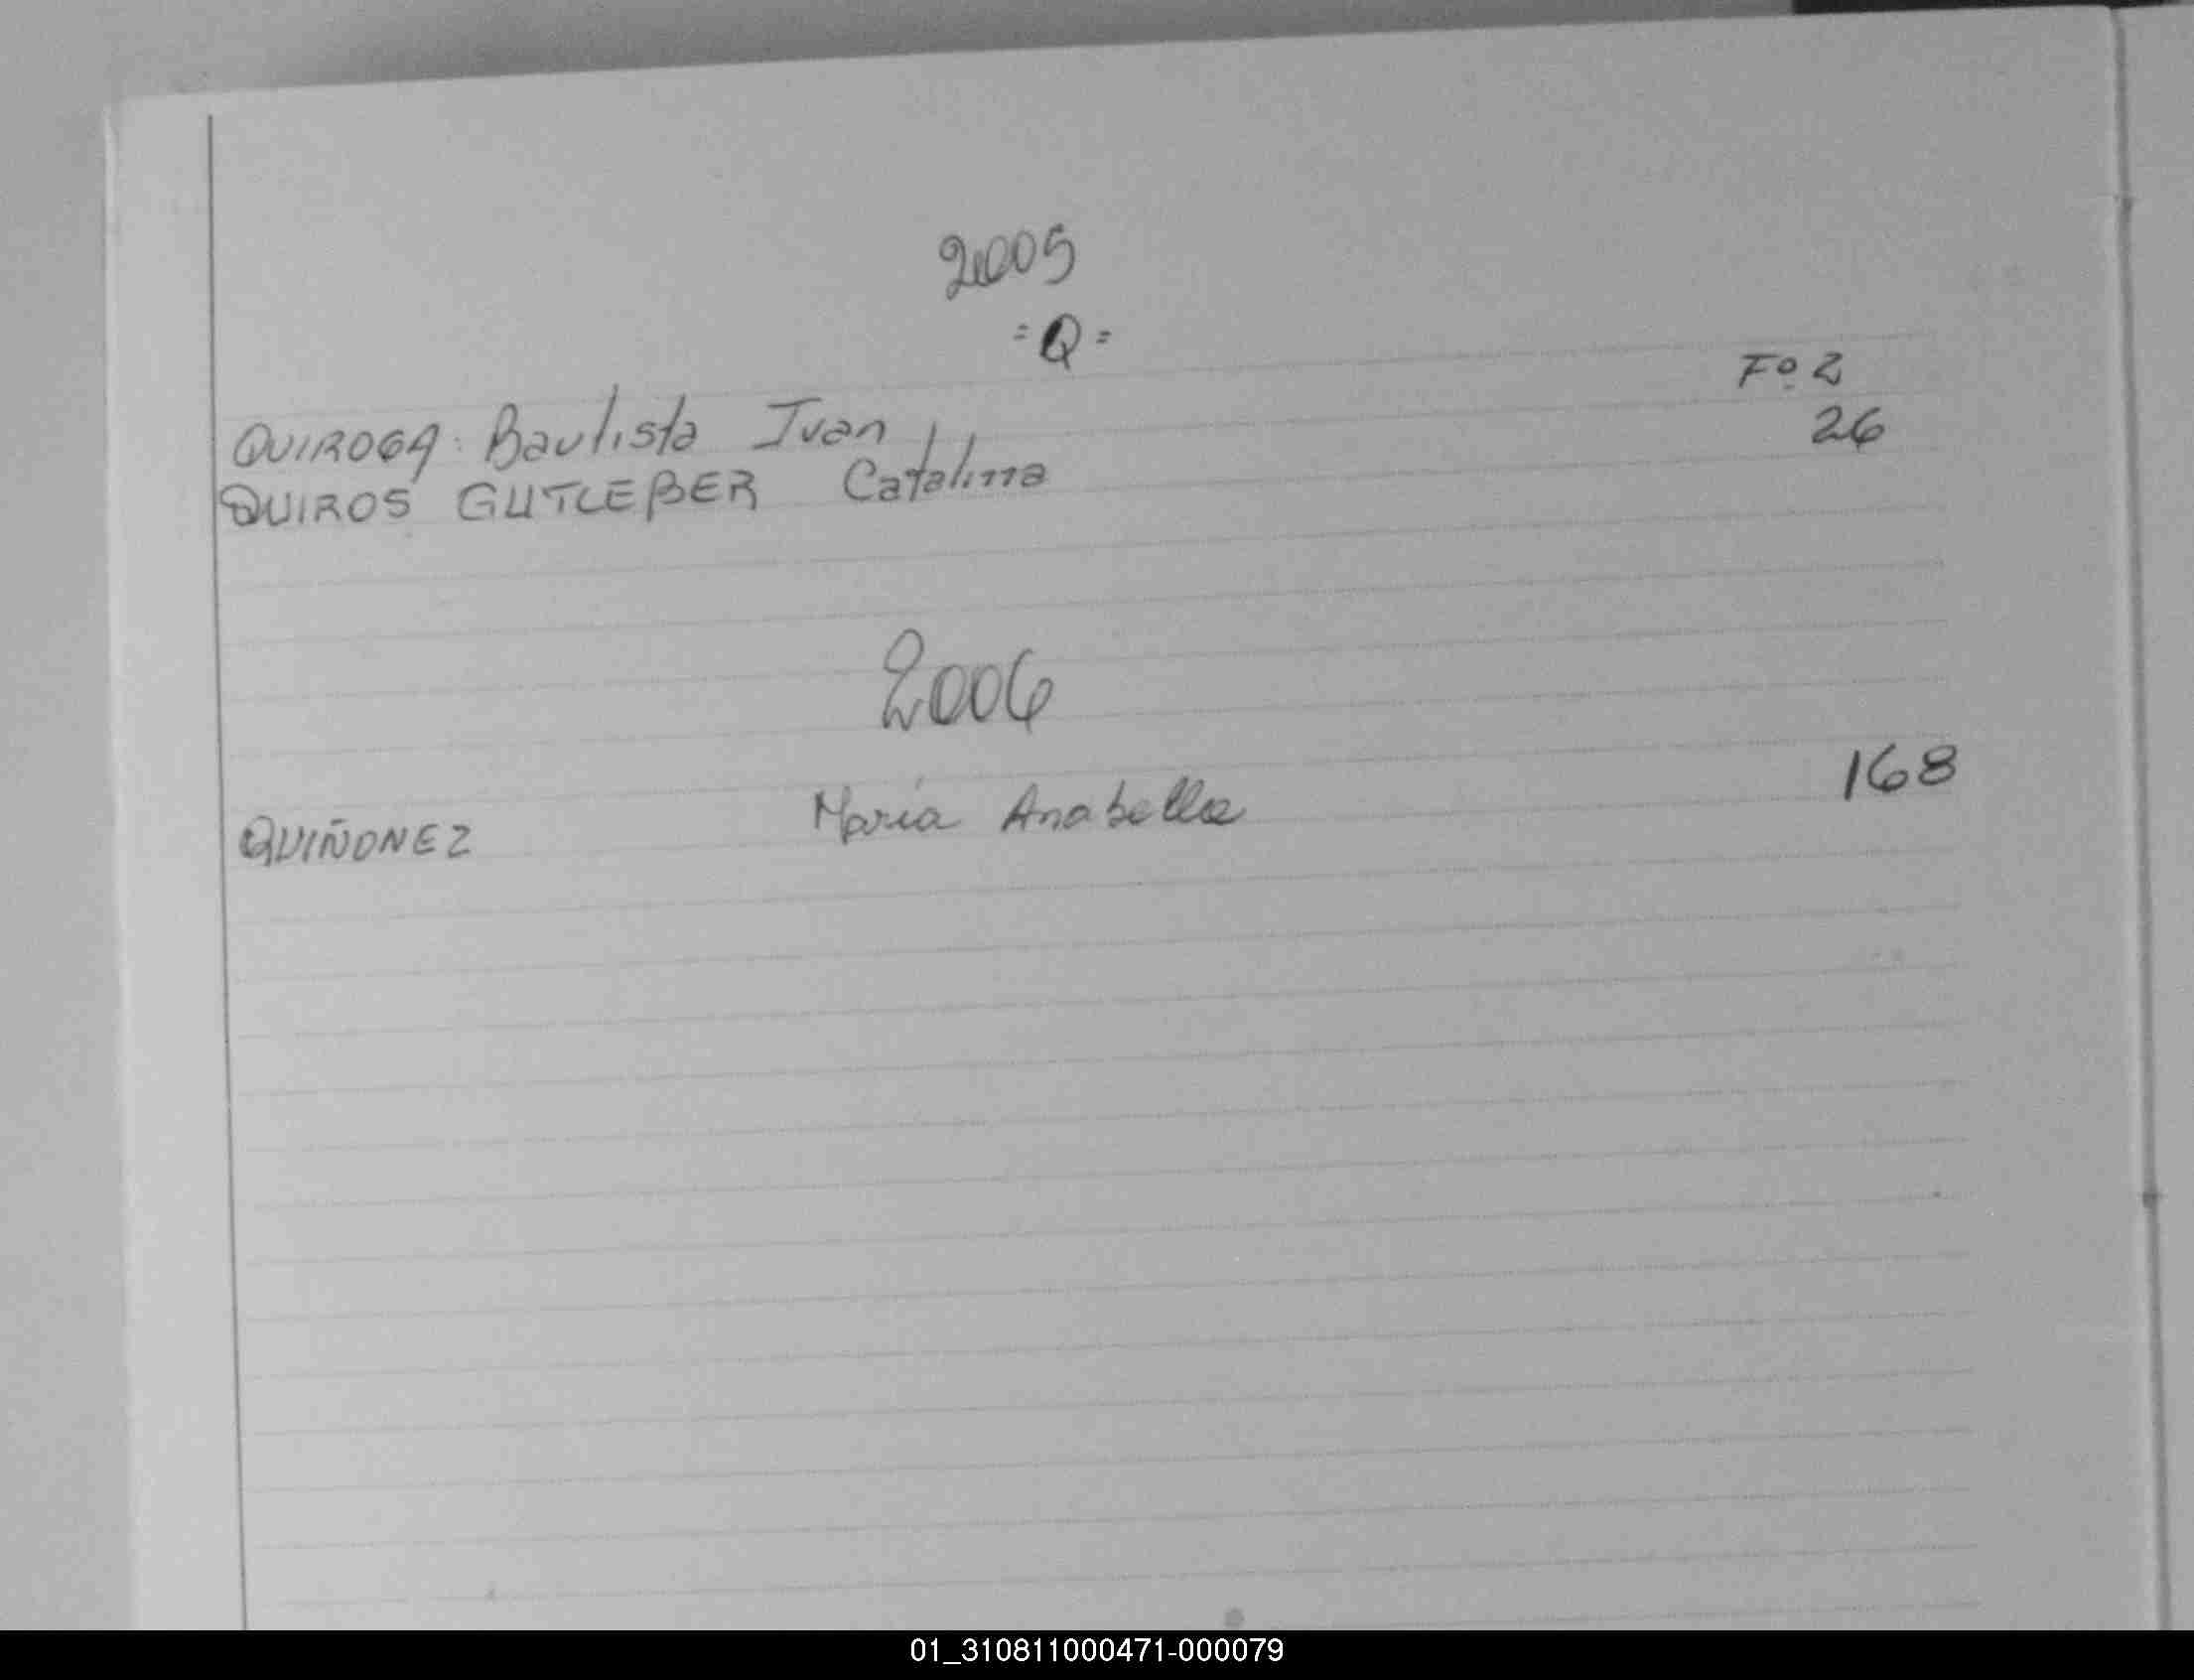 2005
=Q=
QUIROGA: Bautista Ivan Fº 2
QUIROS GUTLEBER Catalina 26
2006
QUIÑONEZ María Anabella 168
01_310811000471-000079